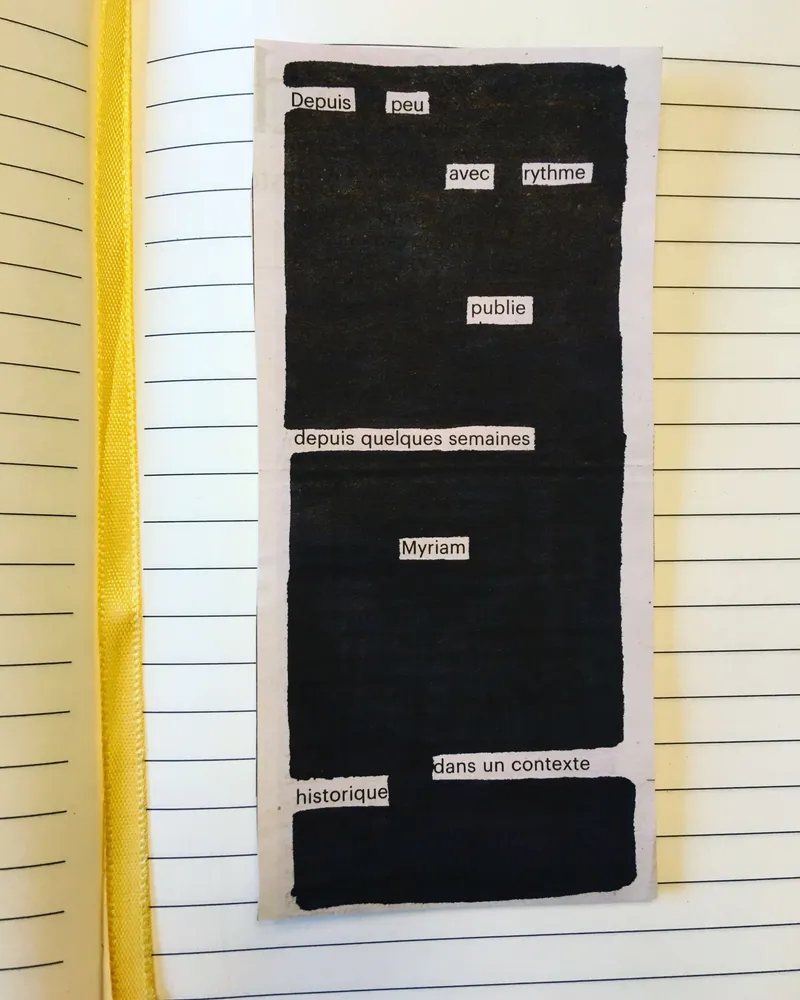 Depuis peu
avec rythme
publie
depuis quelques semaines
Myriam
dans un contexte
historique